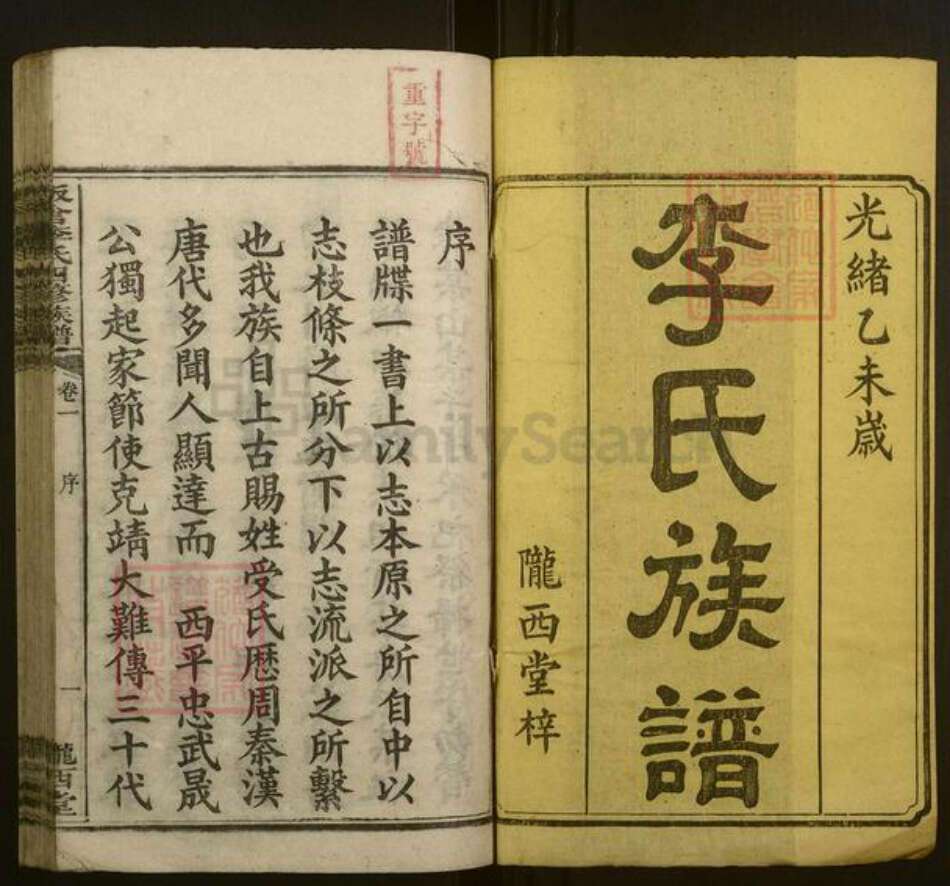 光緒乙未歲
李氏族譜
隴西堂梓
重字號
序
譜牒一書上以志本原之所自中以
志枝條之所分下以志流派之所繫
也我族自上古賜姓受氏歷周秦漢
唐代多聞人顯達而 西平忠武晟
公獨起家節使克靖大難傳三十代
李氏四修族譜
卷一
序
一
隴西堂
FamilySearch